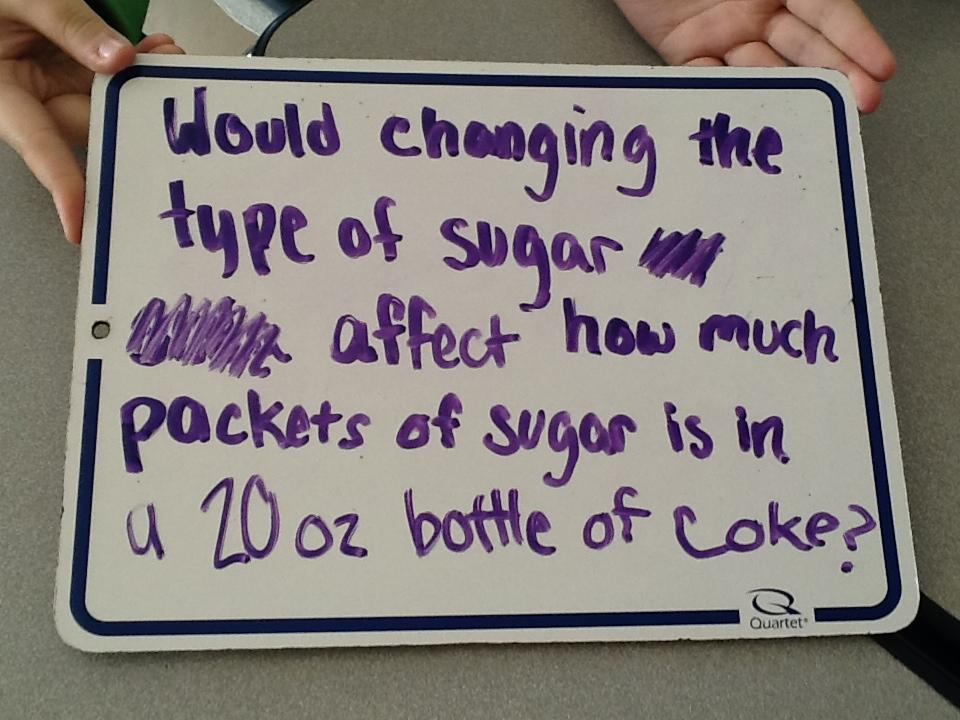 Would changing the
type of sugar
affect how much
packets of sugar is in
a 20 oz bottle of Coke?
Quartet®